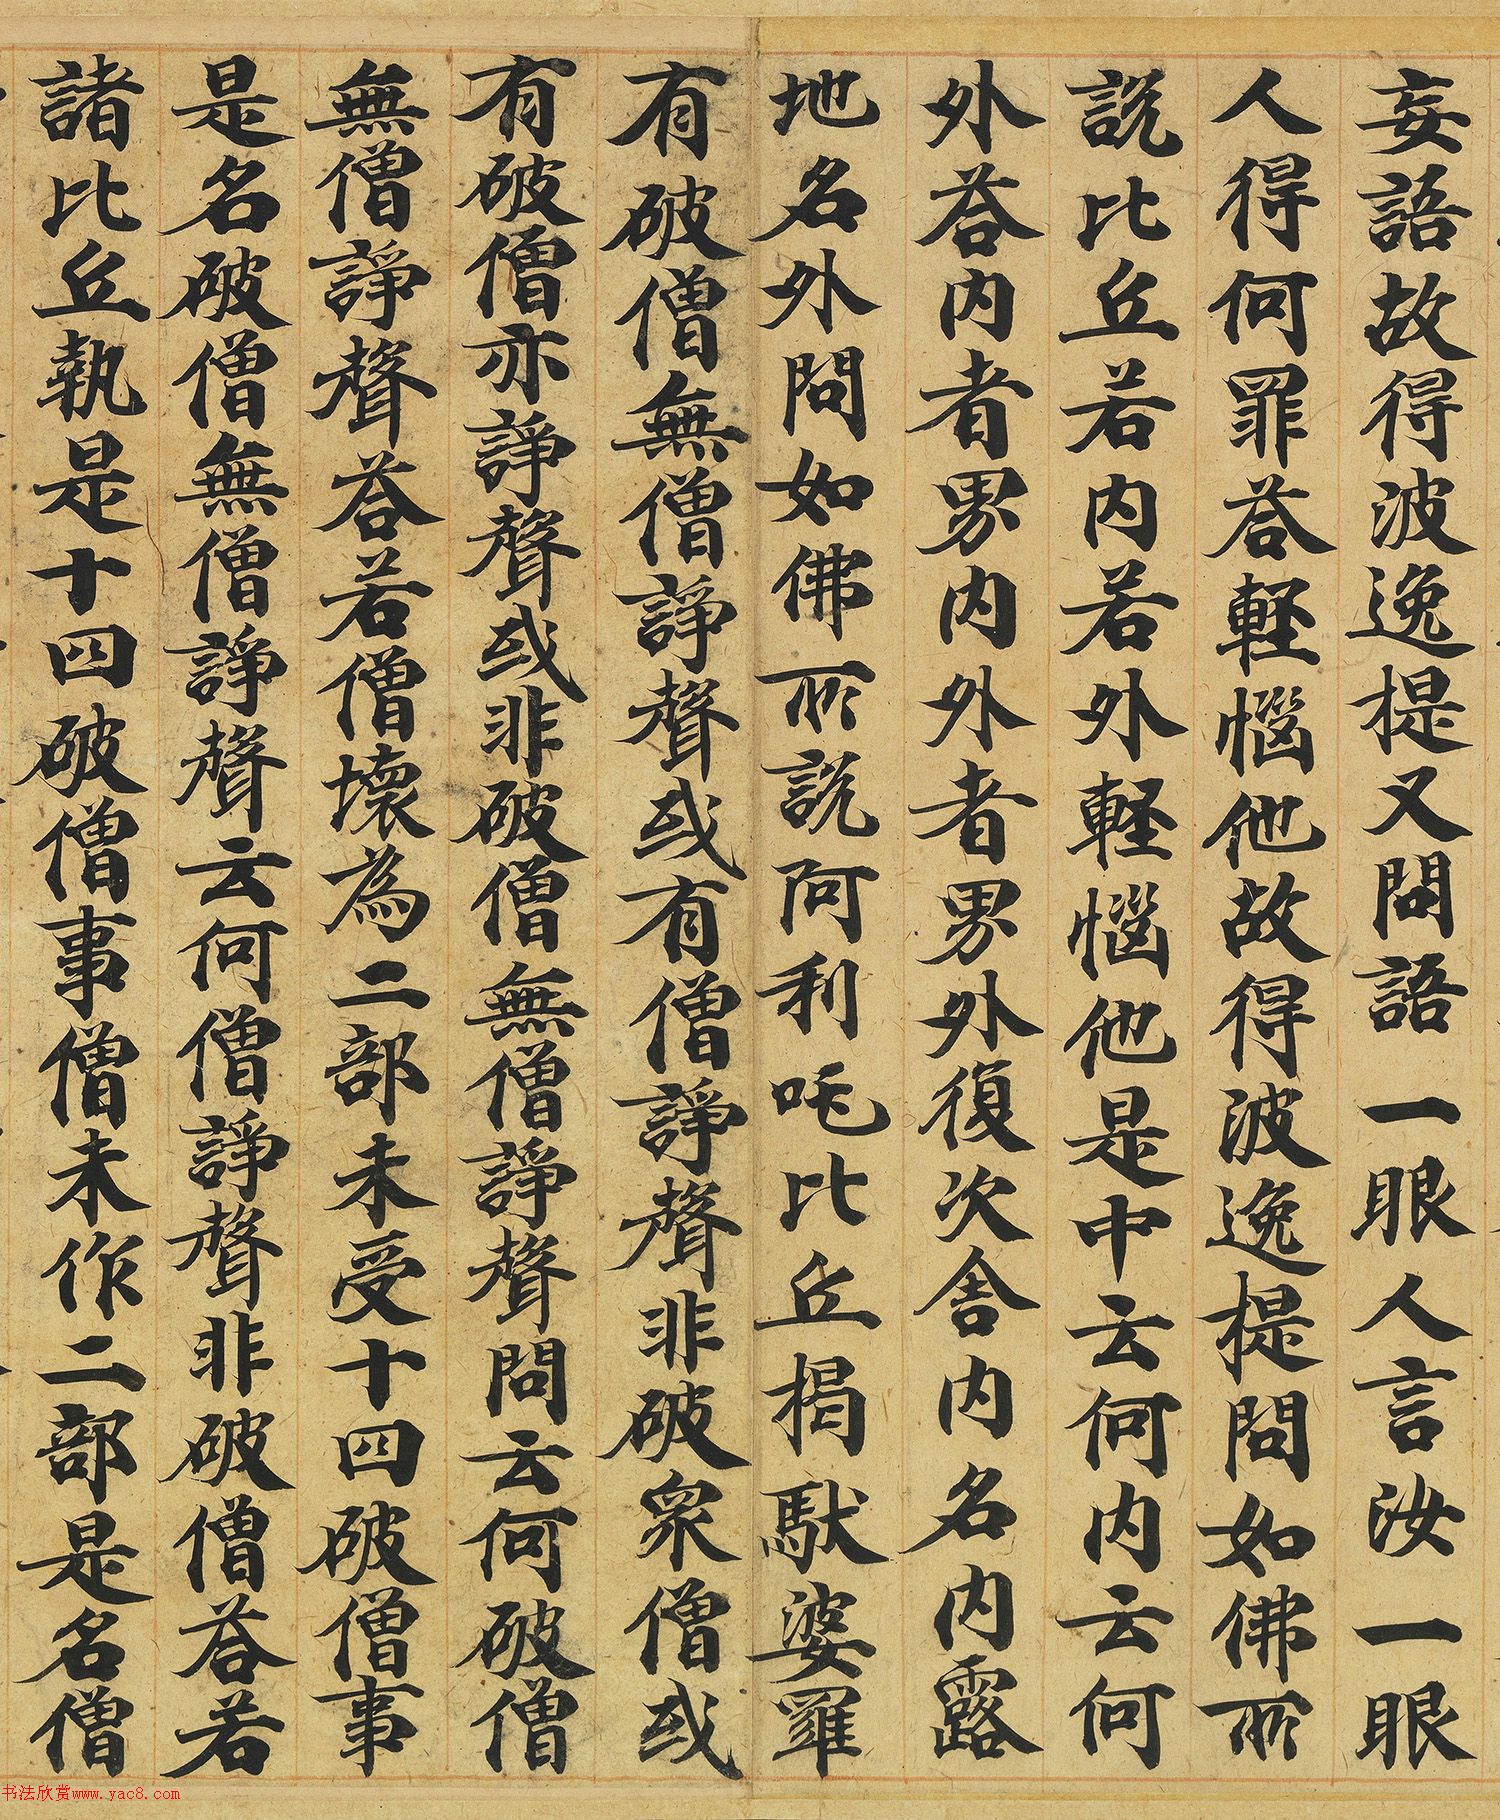 妄語故得波逸提又問語一眼人言汝一眼
人得何罪荅輕惱他故得波逸提問如佛所
說比丘若內若外輕惱他是中云何內云何
外荅內者界內外者界外復次舍內名內露
地名外問如佛所說阿利吒比丘揭馱婆羅
有破僧無僧諍聲或有僧諍聲非破眾僧或
有破僧亦諍聲或非破僧無僧諍聲問云何破僧
無僧諍聲荅若僧壞為二部未受十四破僧事
是名破僧無僧諍聲云何僧諍聲非破僧荅若
諸比丘執是十四破僧事僧未作二部是名僧
书法欣赏www.yac8.com